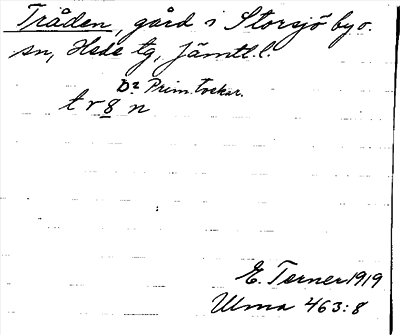 Tråden, gård i Storsjö by o.
sn, Hede tg, Jämtl. l.
D2 Prim. tvekar.
t r 8 n
E. Terner 1919
Ulma 463:8